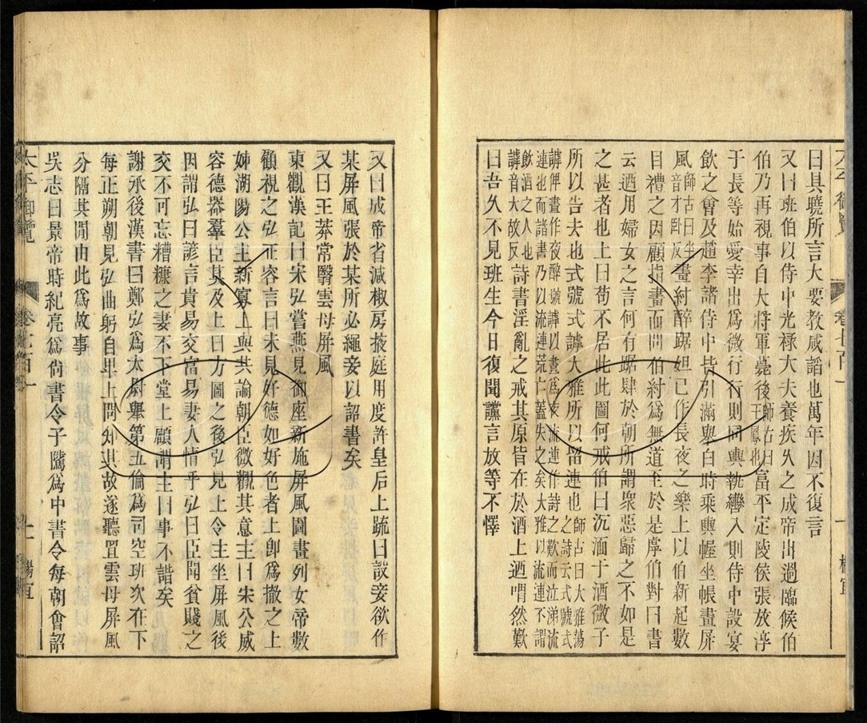 曰具曉所言大要教咸謟也萬年因不復言
又曰班伯以侍中光祿大夫養疾久之成帝出過臨候伯
伯乃再視事自大將軍薨後師古曰王鳳也富平定陵侯張放淳
于長等始愛幸出爲微行行則同輿執轡入則侍中設宴
飲之會及趙李諸侍中皆引滿舉白時乘輿幄坐帳畫屏
風師古曰坐音才卧反畫紂醉踞妲己作長夜之樂上以伯新起數
目禮之因顧指畫而問伯紂爲無道至於是虖伯對曰書
云迺用婦女之言何有踞肆於朝所謂衆惡歸之不如是
之甚者也上曰苟不若此此圖何戒伯曰沉湎于酒微子
所以告夫也式號式謼大雅所以留連也師古曰大雅蕩之詩云式號式
謼俾晝作夜醉號謼以晝爲夜流連作詩之歎而泣涕流
連也而諸書乃以流連荒亡蓋失之矣大雅以流連不謂
飲酒之人也謼音大故反詩書淫亂之戒其原皆在於酒上迺喟然歎
曰吾久不見班生今日復聞讜言放等不懌
太平御覽 卷七百一
又曰成帝省減椒房掖庭用度許皇后上疏曰設妾欲作
某屏風張於某所必繩妾以詔書矣
又曰王莽常翳雲母屏風
東觀漢記曰宋弘嘗燕見御座新施屏風圖畫列女帝數
顧視之弘正容言曰未見好德如好色者上即爲撤之上
姊湖陽公主新寡上與共論朝臣微觀其意主曰宋公威
容德器羣臣莫及上曰方圖之後弘見上令主坐屏風後
因謂弘曰諺言貴易交富易妻人情乎弘曰臣聞貧賤之
交不可忘糟糠之妻不下堂上顧謂主曰事不諧矣
謝承後漢書曰鄭弘爲太尉舉第五倫爲司空班次在下
每正朔朝見弘曲躬自卑上問知其故遂聽置雲母屏風
分隔其間由此爲故事
吳志曰景帝時紀亮爲尚書令子騭爲中書令每朝會詔
太平御覽 卷七百一